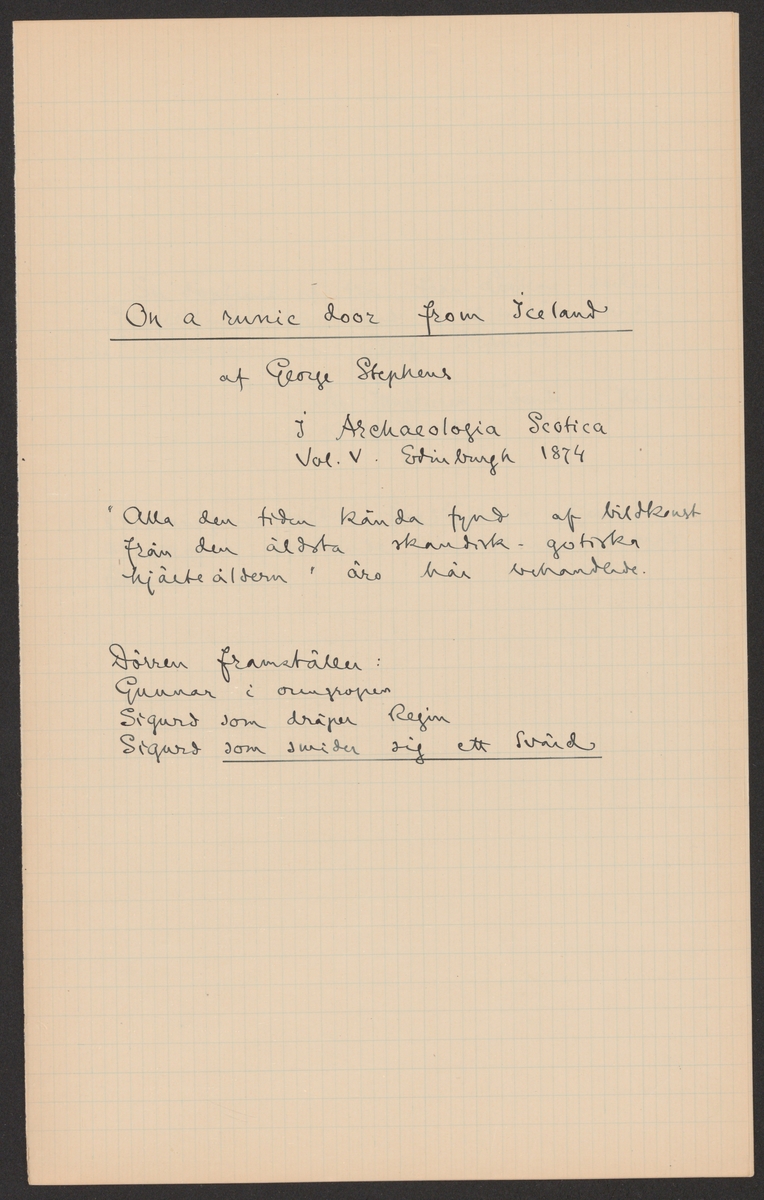 On a runic door from Iceland
af George Stephens
I Archaeologia Scotica
Vol. V. Edinburgh 1874
"Alla den tiden kända fynd af bildkonst
från den äldsta skandisk-gotiska
hjälteåldern" äro här behandlade.
Dörren framställer:
Gunnar i ormgropen
Sigurd som dräper Regin
Sigurd som smider sig ett svärd